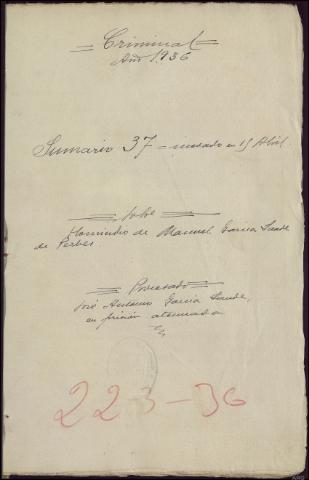 Criminal
Año 1936
Sumario 37 - incoado en 15 Abril.
Sobre
Homicidio de Manuel García Sande
de Perbes
Procesado
José Antonio García Sande,
en prisión atenuada
223-36